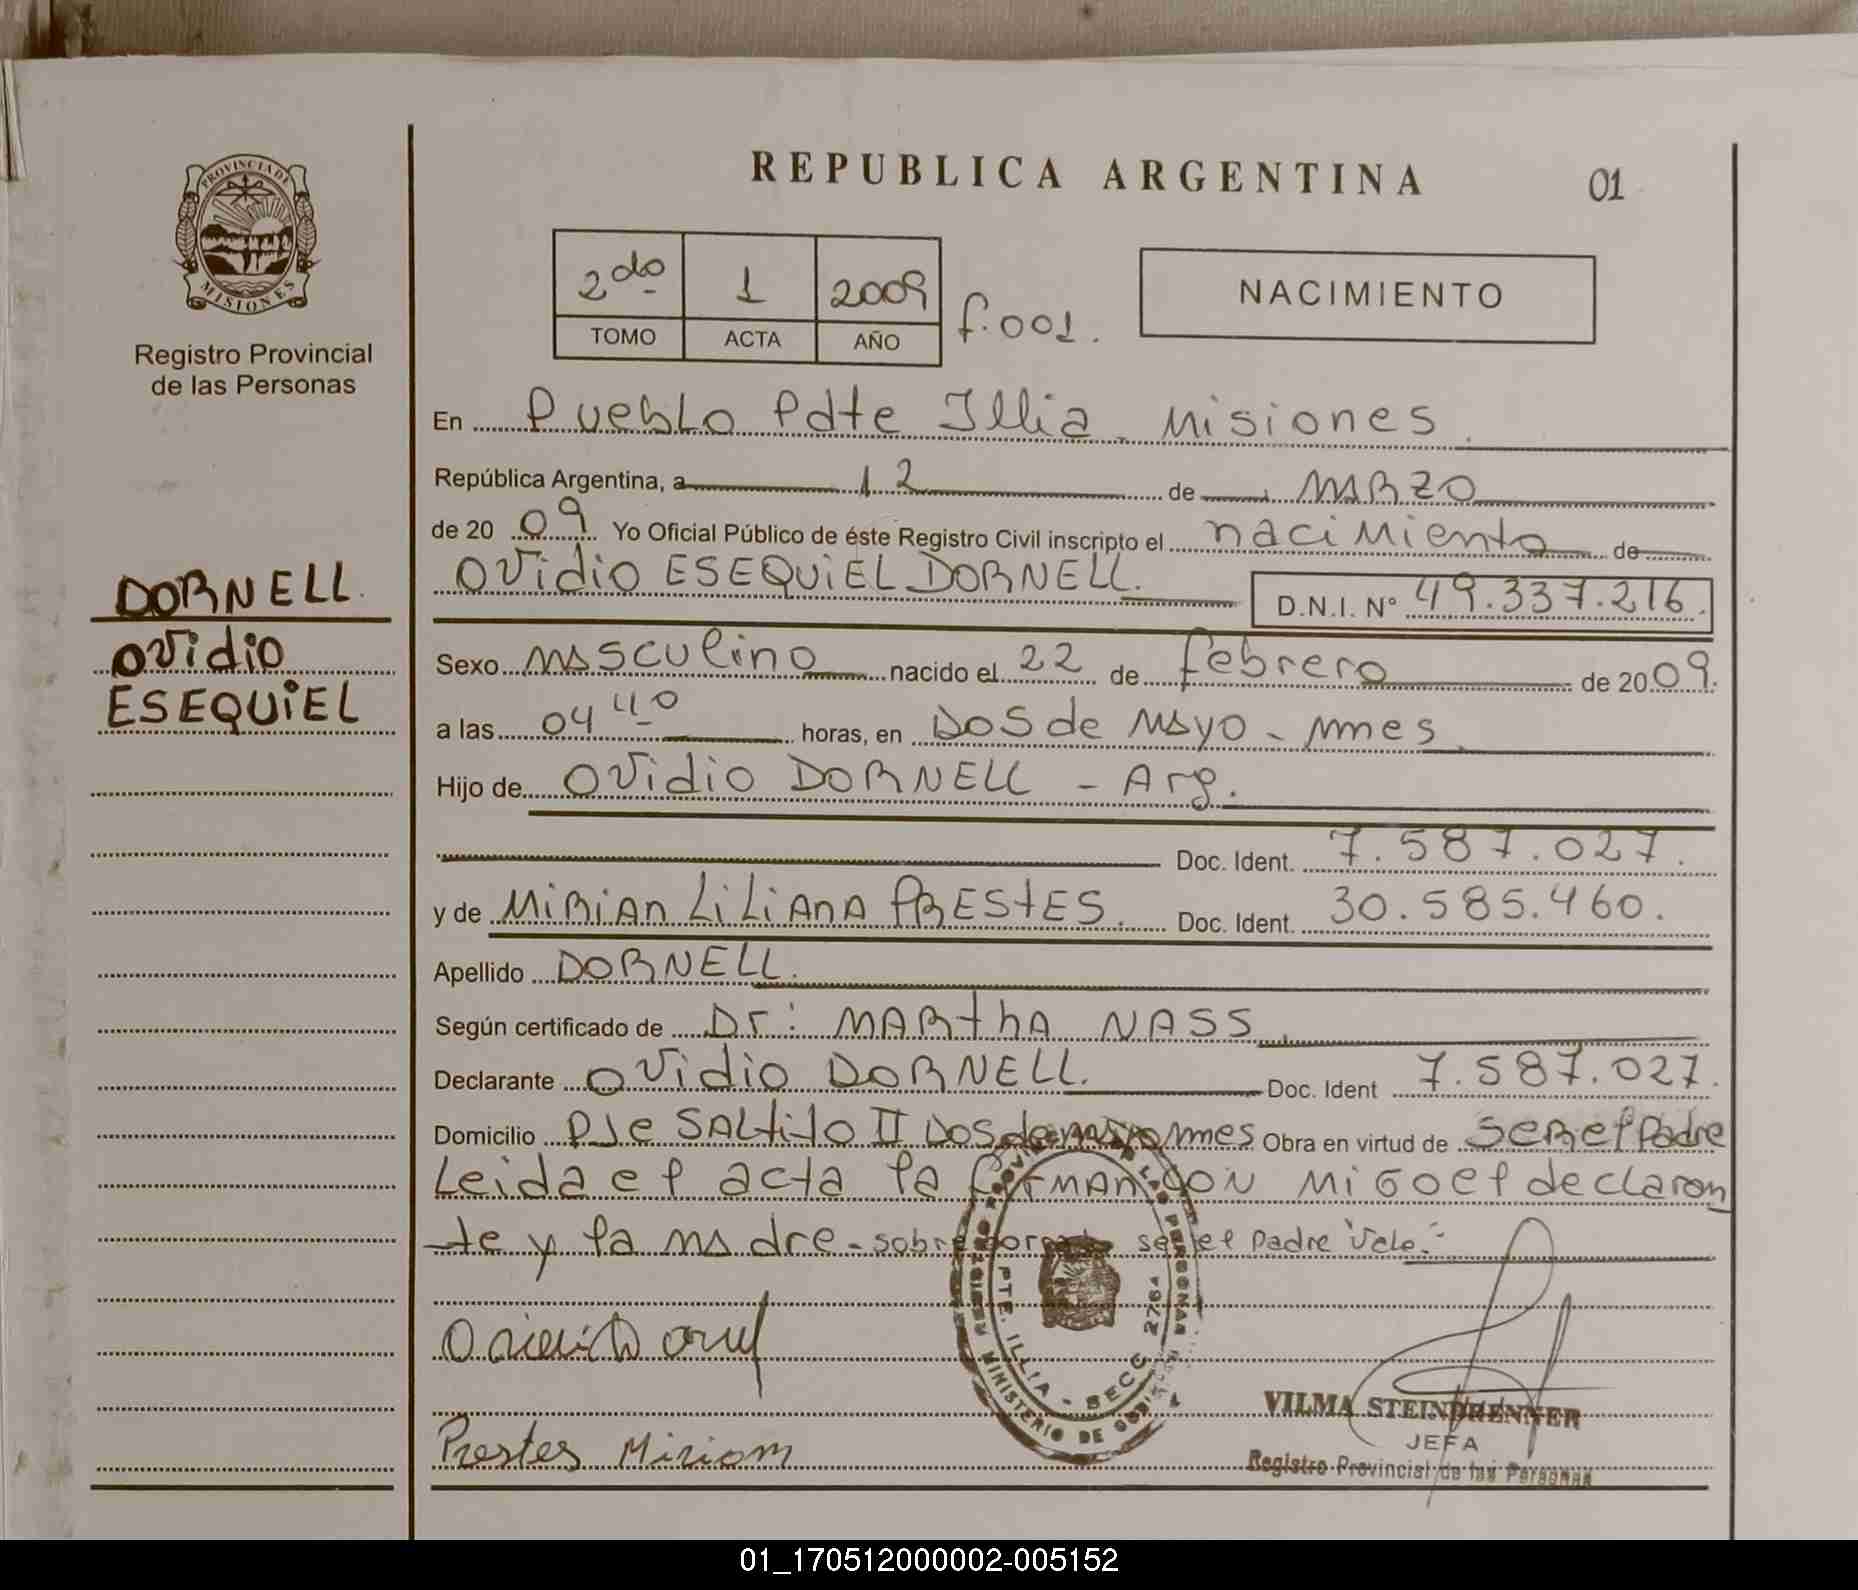 REPUBLICA ARGENTINA
01
PROVINCIA DE
MISIONES
Registro Provincial
de las Personas
2do 1 2009
TOMO ACTA AÑO
f.001.
NACIMIENTO
En Pueblo Pdte Illia - Misiones.
República Argentina, a 12 de marzo
de 2009 Yo Oficial Público de éste Registro Civil inscripto el nacimiento de
OVidio ESEQUIEL DORNELL.
D.N.I. N° 49.337.216.
DORNELL.
OVidio
ESEQUIEL
Sexo masculino nacido el 22 de febrero de 2009.
a las 04 40 horas, en Dos de Mayo - mnes.
Hijo de OVidio DORNELL - Arg.
Doc. Ident. 7.587.027.
y de MiRiAn LiLiAnA PREStES. Doc. Ident. 30.585.460.
Apellido DORNELL.
Según certificado de Dr: MARthA NASS.
Declarante OVidio DORNELL. Doc. Ident 7.587.027.
Domicilio Pje SALtito II Dos de mayo mnes Obra en virtud de SER el Padre
Leida el acta la firman con migo el declaran
te y la madre - sobre ser el padre Vale.-
REGISTRO PERSONAS
PTE. ILLIA - SECC 2764
MINISTERIO DE
Prestes Miriam
VILMA STEINDRENNER
JEFA
Registro Provincial de las Personas
01_170512000002-005152